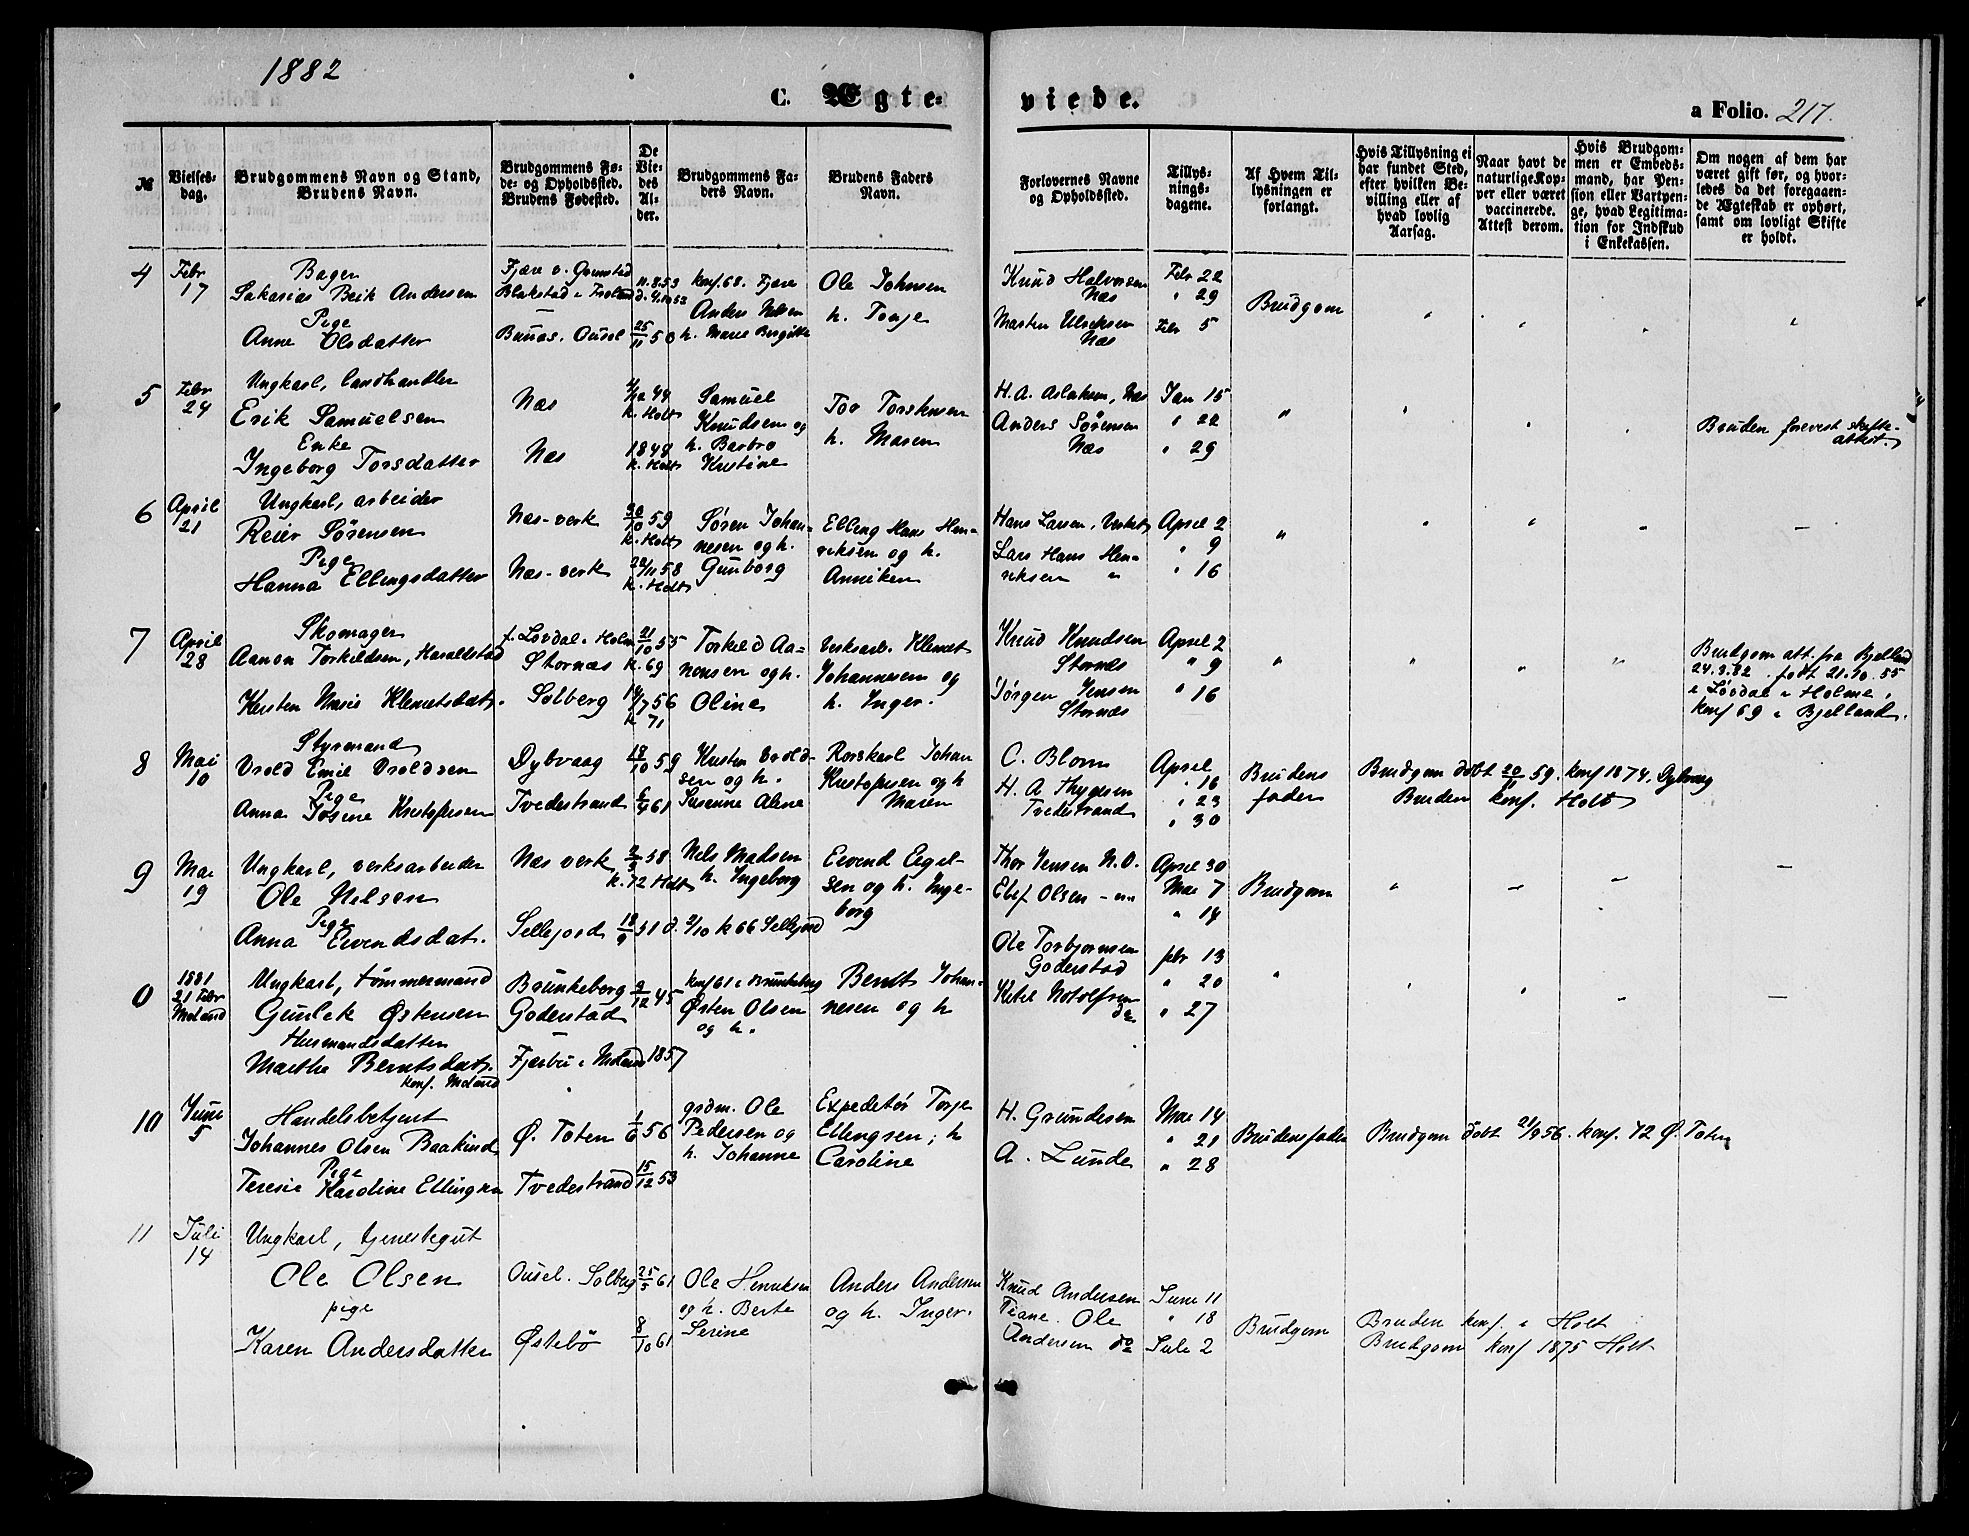 1882
C. Ægte=
viede.
a Folio. 217.
№
Vielses-
dag.
Brudgommens Navn og Stand,
Brudens Navn.
Brudgommens Fø-
de- og Opholdssted.
Brudens Fødested.
De
Vie-
des
Al-
der.
Brudgommens Fa-
ders Navn.
Brudens Faders
Navn.
Forlovernes Navne
og Opholdssted.
Tillys-
nings-
dagene.
Af Hvem Til-
lysningen er
forlangt.
Hvis Tillysning ei
har fundet Sted,
efter hvilken Be-
villing eller af
hvad lovlig
Aarsag.
Naar havt de
naturlige Kop-
per eller været
vaccinerede.
Attest derom.
Hvis Brudgom-
men er Embeds-
mand, har Pen-
sion eller Vartpen-
ge, hvad Legitima-
tion for Indskud
i Enkekassen.
Om nogen af dem har
været gift før, og hvor-
ledes da det foregaaen-
de Ægteskab er ophørt,
samt om lovligt Skifte
er holdt.
4
Febr
17
Bager
Sakarias Beik Andersen
Pige
Anne Olsdatter
Fjære v. Grimstad
Blakstad i Froland
Buaas. Ousel
11.8.53
25/11 50
konf. 68. Fjære
Anders Nilsen
h. Marie Bergitte
Ole Johnsen
h. Tonje
Knud Halvorsen
Næs
Morten Ulriksen
Næs
Febr 22
" 29
Febr 5
Brudgom
5
Febr
24
Ungkarl, landhandler
Erik Samuelsen
Enke
Ingeborg Torsdatter
Næs
Næs
k. Holt
1848
k. Holt
Samuel
Knudsen og
h. Berbro
Kristine
Tov Torstensen
h. Maren
H. A. Aslaksen, Næs
Anders Sørensen
Næs
Jan 15
" 22
" 29
"
Bruden forevist skifte-
attest.
6
April
21
Ungkarl, arbeider
Reier Sørensen
Pige
Hanna Ellingsdatter
Næs-verk
Næs-verk
30/10 59
k. Holt
22/11 58
k. Holt
Søren Johan-
nesen og h.
Gunborg
Elling Hans Hen-
riksen og h.
Anniken
Hans Larsen, Verket
Lars Hans Hen-
riksen "
April 2
" 9
" 16
"
7
April
28
Skomager
Aanon Torkildsen, Haraldstad
Kirsten Marie Klemetsdat.
f. Løvdal i Holm
Stornæs
Solberg
21/10 55
k. 69
14/7 56
k 71
Torkild Aa-
nonsen og h.
Oline
Verksarb. Klemet
Johannesen og
h. Inger.
Knud Knudsen
Stornæs
Jørgen Jensen
Stornæs
April 2
" 9
" 16
"
Brudgom att. fra Bjelland
24.3.82 født 21.10.55
i Løvdal i Holme,
konf 69 i Bjelland.
8
Mai
10
Styrmand
Vrold Emil Vroldsen
Pige
Anna Josine Kristofersen
Dybvaag
Tvedestrand
18/10 59
6/4 61
Kristen Vrold-
sen og h.
Susanne Aline
Rorskarl Johan
Kristofersen og h
Maren
C. Blom
H. A Thygesen
Tvedestrand
April
" 16
" 23
" 30
Brudens
fader
Brudgom døbt 20/11 59. konf 1874, Dybvaag
Bruden konf. Holt
9
Mai
19
Ungkarl, verksarbeider
Ole Nilsen
Pige
Anna Eivendsdat.
Næs verk
Sellejord
2/3 58
k. 72 Holt
18/9 51 d. 2/10 k 66 Sellejord
Nils Madsen
h. Ingeborg
Eivend Eigil-
sen og h. Inge-
borg
Thor Jensen N. V.
Elef Olsen
April 30
Mai 7
" 14
Brudgom
0
1881
21 Febr
Moland
Ungkarl, tømmermand
Gunlek Østensen
Husmandsdatter
Marthe Berntsdat.
konf. Moland
Brunkeborg
Goderstad
Fjærbu i Moland 1857
2/12 45
konf 61 i Brunkeberg
Østen Olsen
og h.
Bernt Johan-
nesen og h
Ole Torbjornsen
Goderstad
Ketil Notolfsen
do
febr 13
" 20
" 27
"
10
Juni
5
Handelsbetjent
Johannes Olsen Baakind
Pige
Teresie Karoline Ellingsen
Ø. Toten
Tvedestrand
1/6 56
15/12 53
grdm. Ole
Pedersen og
h. Johanne
Expeditør Torje
Ellingsen; h
Caroline
H. Gundersen
A. Lunde
Mai 14
" 21
" 28
Brudens fader
Brudgom døbt 21/9 56. konf. 72 Ø. Toten
11
Juli
14
Ungkarl, tjenestegut
Ole Olsen
pige
Karen Andersdatter
Ousel. Solberg
Østebø
25/5 61
8/10 61
Ole Henriksen
og h. Berte
Serine
Anders Andersen
og h. Inger.
Knud Andersen
Fiane. Ole
Andersen do
Juni 11
" 18
Juli 2
Brudgom
Bruden konf. i Holt
Brudgom konf 1875 Holt